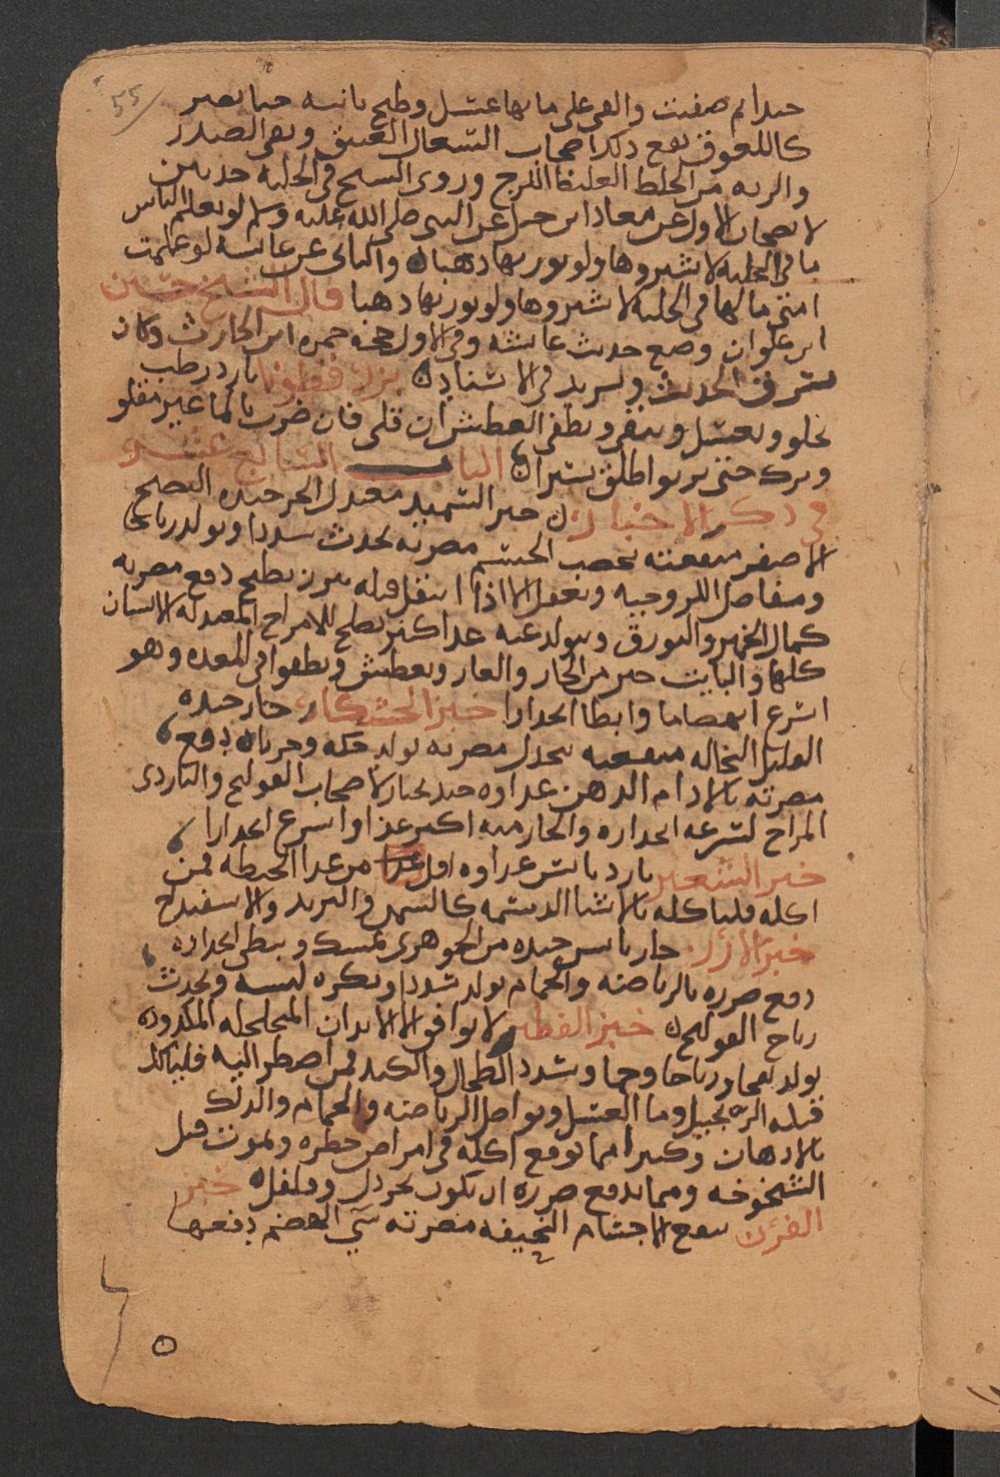 55
جيدا ثم صفيت والقي على مايها عسل وطبخ ثانيه حتا يصير
كاللعوق نفع ذلك اصحاب السعال العتيق ونقى الصدر
والريه من الخلط الغليظ اللزج وروى الشيخ في الحلبه حديثين
لا يصحان الاول عن معاذ ابن جبل عن النبي صلى الله عليه وسلم لو يعلم الناس
ما في الحلبه لاشتروها ولو بوزنها ذهبا والثاني عن عايشه لو علمت
امتي مالها في الحلبه لاشتروها ولو بوزنها ذهبا قال الشيخ حسين
ابن علوان وضع حديث عايشه وفي الاول حجة حمزه ابن الحارث وكان
يسرق الحديث ويزيد في الاسناد بزر قطونا بارد رطب
يجلو ويغسل ويبقر ويطفى العطش ان قلى فان ضرب بالما غير مقلو
وترك حتى يربو اطلق يسيرا الباب السابع عشر
في ذكر الاخباز خبز السميد معتدل الحر جيده النضيج
الاصفر منفعته يخصب الجسم مضرته يحدث سددا ويولد رياحا
ومفاصل اللزوجيه ويعقل الا اذا انتقل قبله بمرز يطبخ دفع مضرته
كمال الخمير والبورق ويتولد عنه غدا كثير يصلح للامزاج المعتدله الاسنان
كلها والبايت خير من الحار والحار يعطش ويطفوا في المعده وهو
اسرع انهضاما وابطا انحدارا خبز الخشكار حار جيده
القليل النخاله منفعته ينحدل مضرته يولد حكه وجربا دفع
مضرته بالادام الدهن غداوه جيد يختار لاصحاب القولنج والباردى
المزاج لسرعه انحداره والحار منه اكثر غذا واسرع انحدارا
خبز الشعير بارد يابس غداوه اقل غذا من غدا الحنطه فمن
اكله فلياكله بالاشيا الدسمه كالسمن والثريد والاسفيدج
خبز الارز حار يابس جيده من الجوهرى يمسك ويبطى انحداره
دفع ضرره بالرياضه والحمام يولد سددا ويكره لبسه ويحدث
رياح القولنج خبز الفطير لا يوافق الا الابدان المتخلخله المكدوده
يولد نفخا ورياحا وحما وسدد الطحال والكبد فمن اضطر اليه فلياكل
قبله الزنجبيل وما العسل ويواصل الرياضه والحمام والدلك
بالادهان وكثيرا مما يوقع اكله في امراض خطره ويموت قبل
الشيخوخه ومما يدفع ضرره ان يكون بخردل وفلفل خبز
الفرن ينفع الاجسام النحيفه مضرته سي الهضم دفعها